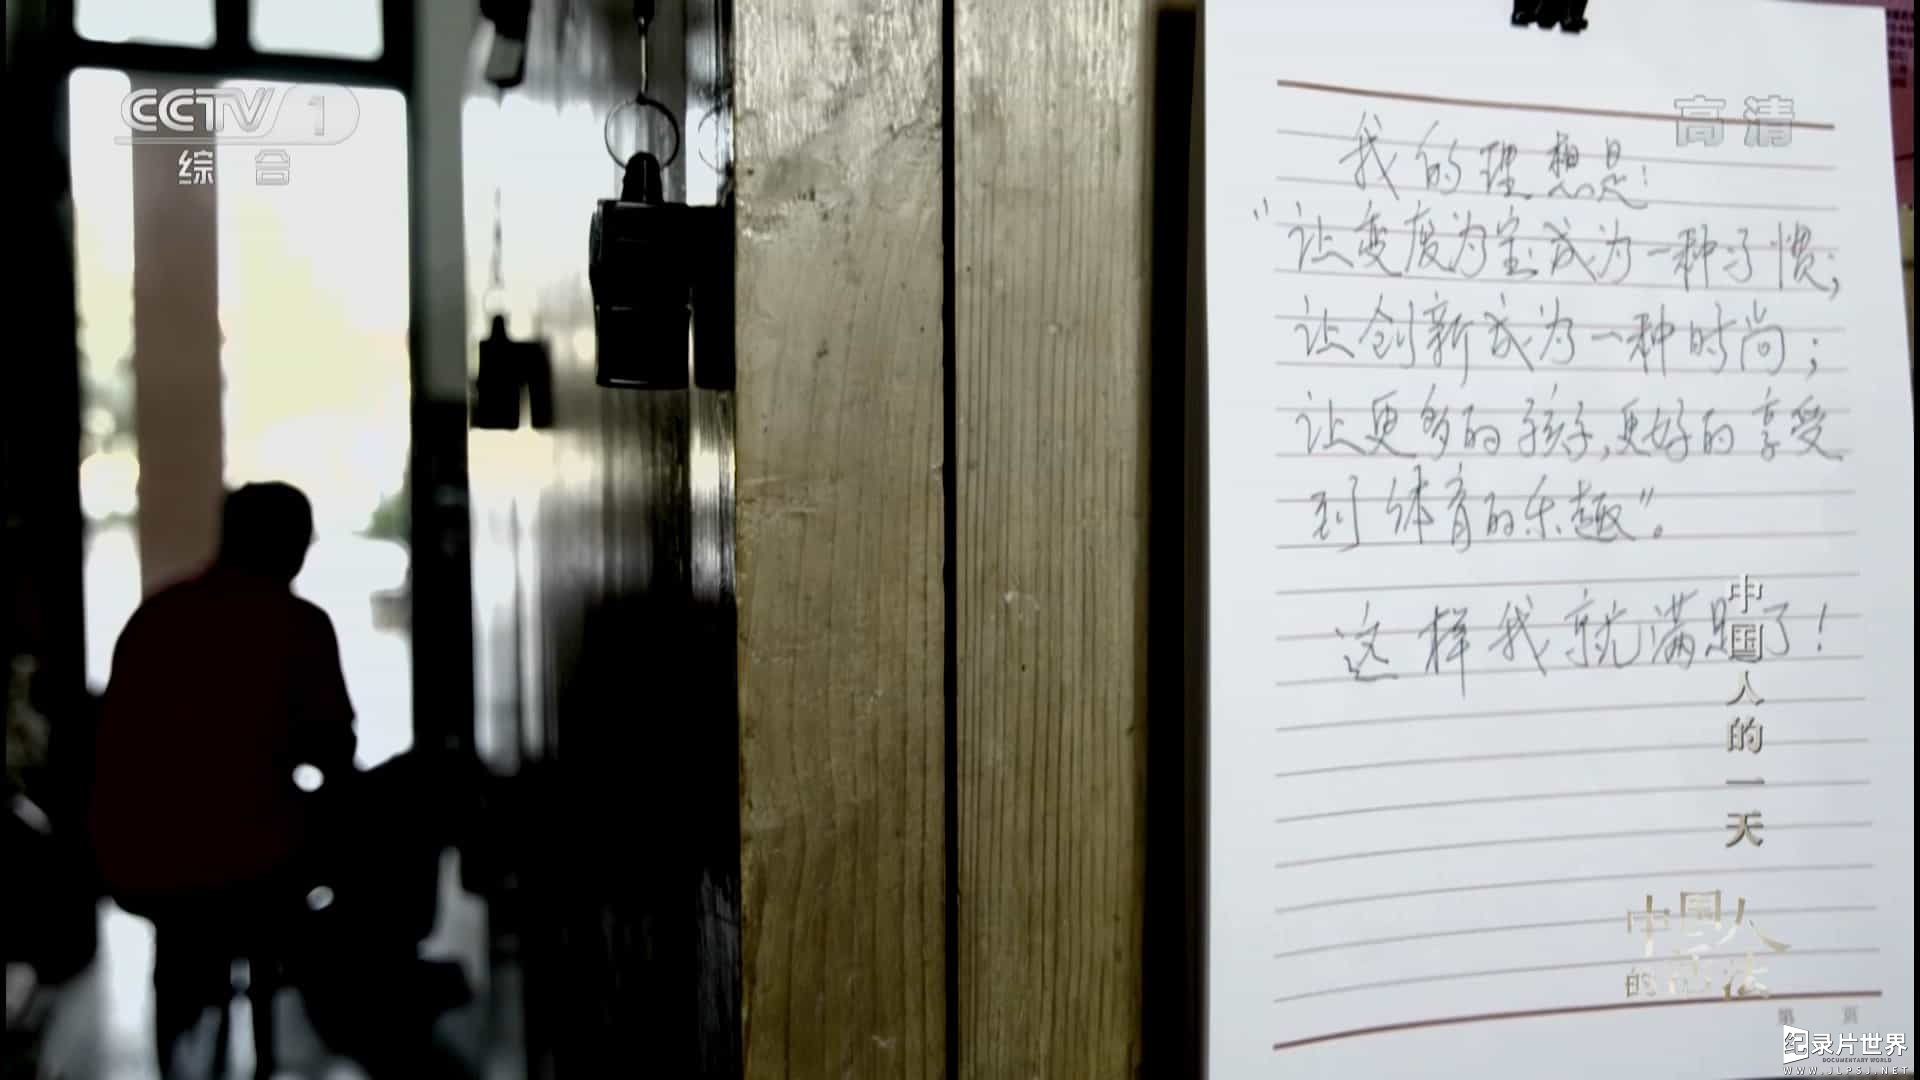 CCTV 1
综 合
高 清
我的理想是:
“让变废为宝成为一种习惯;
让创新成为一种时尚;
让更多的孩子,更好的享受
到体育的乐趣”。
这样我就满足了!
中国人的一天
中国人
的活法
第 页
纪录片世界
DOCUMENTARY WORLD
WWW.JLPSJ.NET